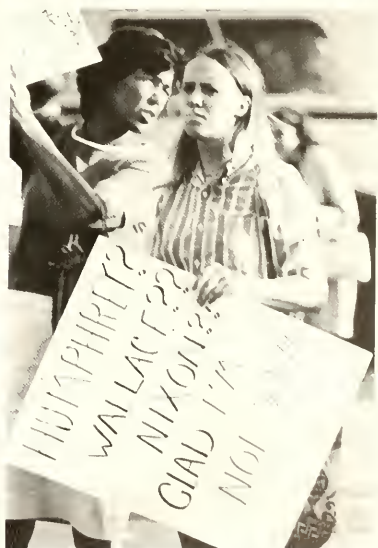 HUMPHREY?
WALLACE??
NIXON?!
GLAD I'M
NOT